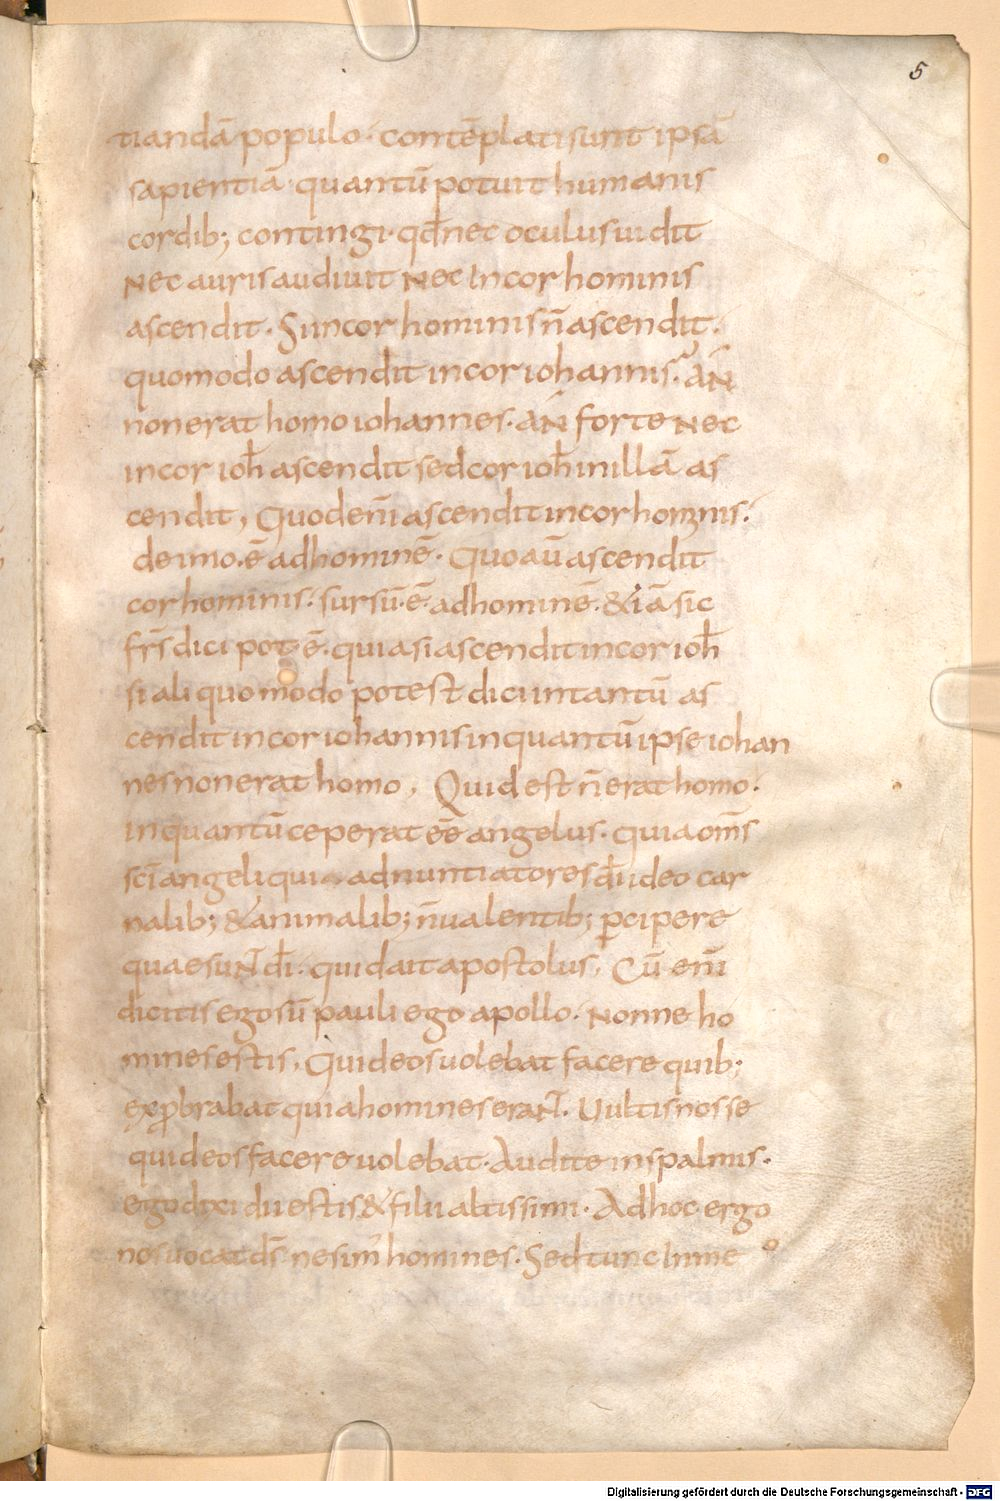 5
tiandā populo· contēplati sunt ipsā
sapientiā· quantū potuit humanis
cordib; contingi· qđ nec oculus uidit
nec auris audiuit nec in cor hominis
ascendit· Si in cor hominis n̄ ascendit·
quomodo ascendit in cor iohannis· an
non erat homo iohannes· an forte nec
in cor ioh̄ ascendit sed cor ioh̄ in illā as
cendit, Quod enī ascendit in cor hominis·
de imo·ē ad hominē· Quo aū ascendit
cor hominis· sursū·ē· ad hominē· & iā sic
fr̄s dici pot·ē· quia si ascendit in cor ioh̄
si aliquo modo potest dici intantū as
cendit in cor iohannis inquantū ipse iohan
nes non erat homo, Quid est n̄ erat homo·
inquantū ceperat eē angelus· quia om̄s
sc̄i angeli quia adnuntiatores dī ideo car
nalib; & animalib; n̄ ualentib; ꝑcipere
quae sun̄t dī· quid ait apostolus, Cū enī
dicitis ego sū pauli ego apollo· nonne ho
mines estis, Quid eos uolebat facere quib;
exprobrabat quia homines eran̄t· Uultis nosse
quid eos facere uolebat· Audite in spalmis·
ego dixi dii estis & filii altissimi· Ad hoc ergo
nos uocat d̄s ne sim' homines· Sed tunc in me
Digitalisierung gefördert durch die Deutsche Forschungsgemeinschaft - DFG